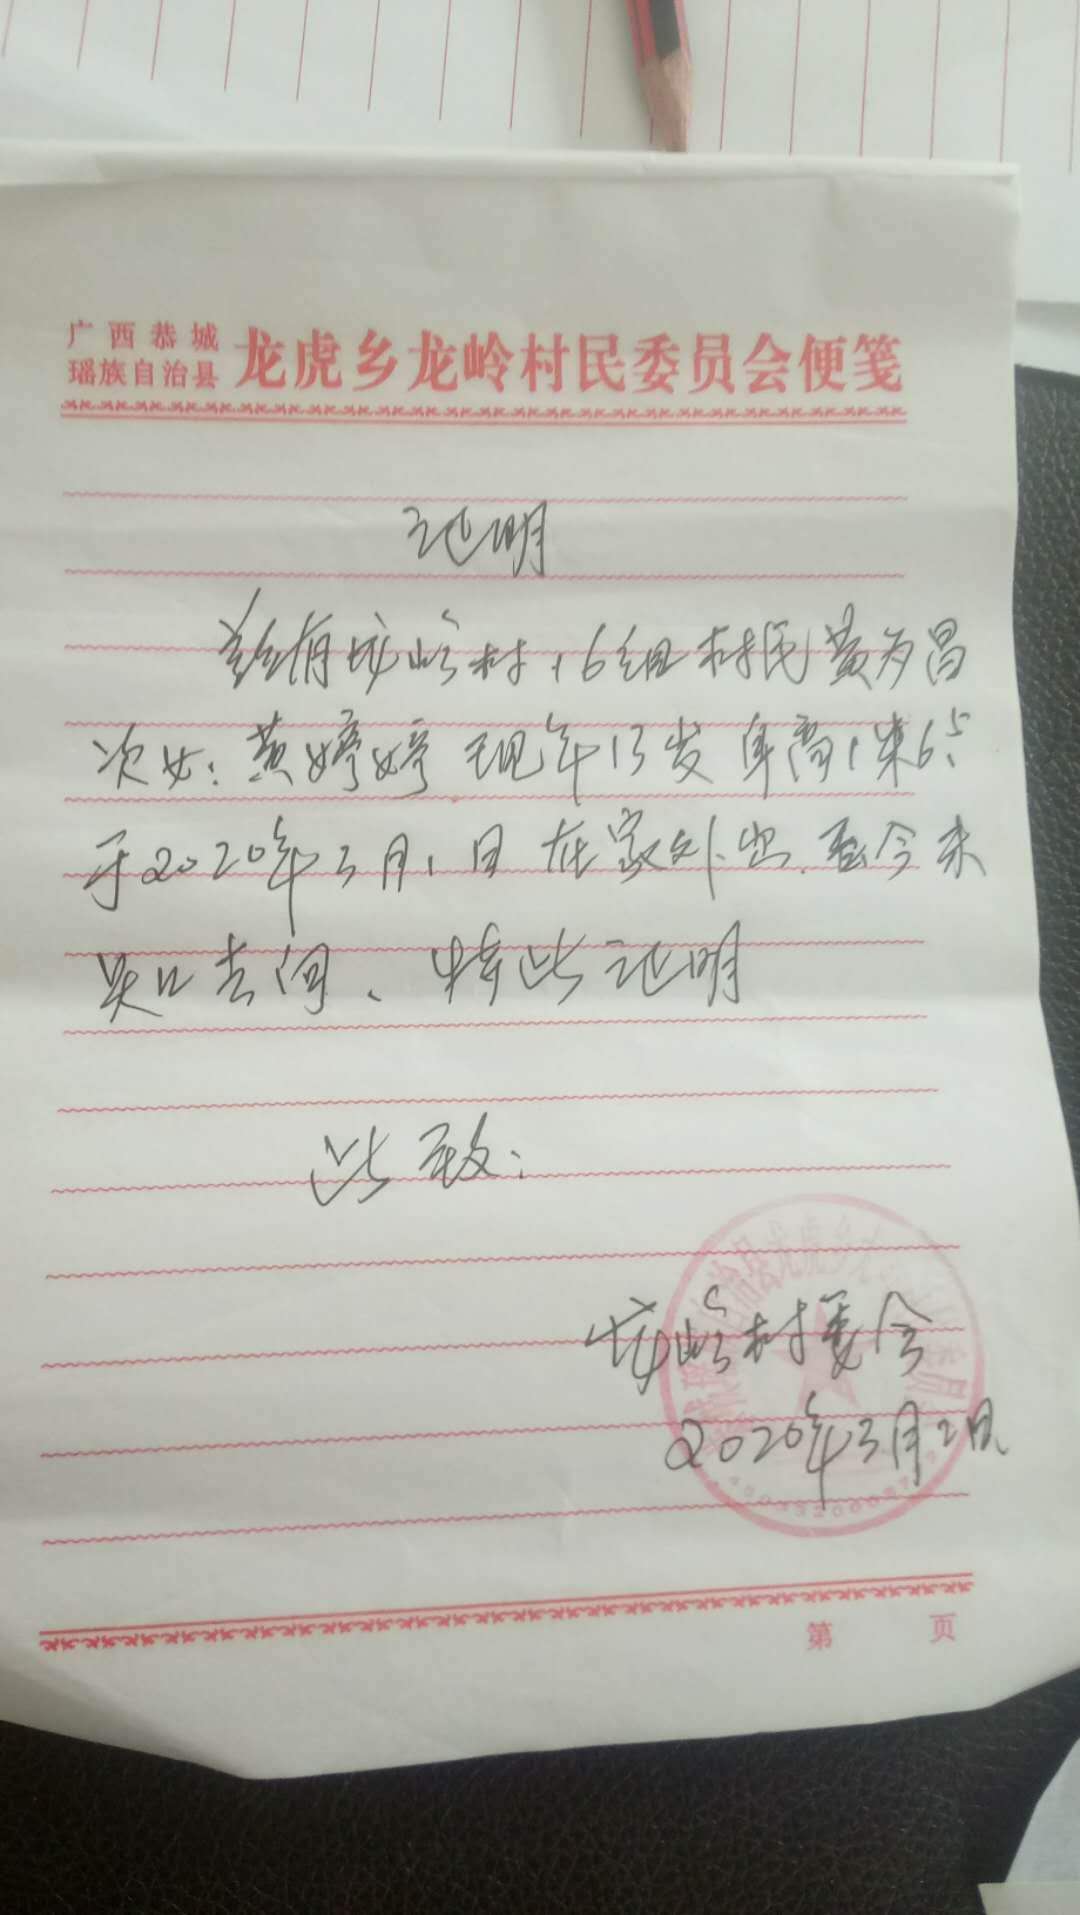 广西恭城
瑶族自治县 龙虎乡龙岭村民委员会便笺
证明
兹有龙岭村,6组村民黄为昌
次女:黄婷婷 现年13岁 身高1米65
于2020年3月1日 在家外出.至今未
归去向、特此证明
此致:
龙岭村委会
2020年3月2日
第 页